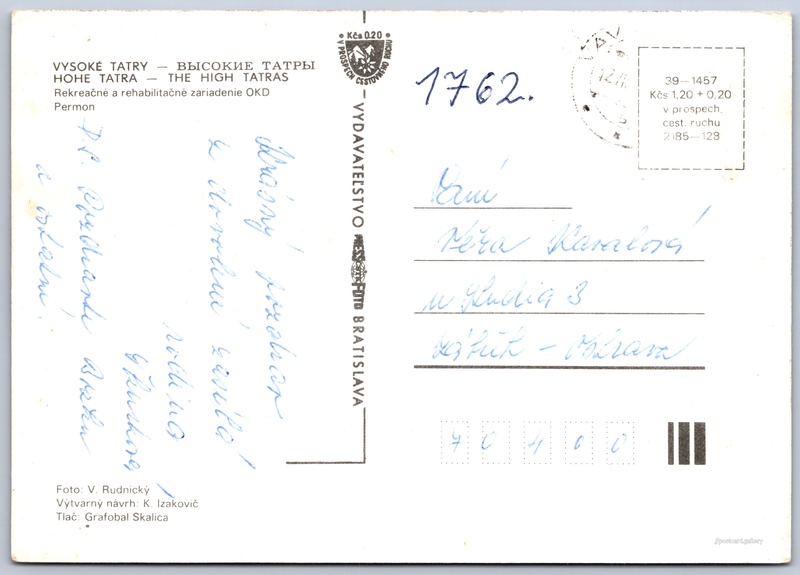 VYSOKÉ TATRY — ВЫСОКИЕ ТАТРЫ
HOHE TATRA — THE HIGH TATRAS
Rekreačné a rehabilitačné zariadenie OKD
Permon
Kčs 0.20
V PROSPECH CESTOVNÉHO RUCHU
1762.
39—1457
Kčs 1,20 + 0,20
v prospech.
cest. ruchu
2185—128
Krásný pozdrav
z dovolené zasílá
rodina
P.S. Pozdravte
a ostatní.
VYDAVATEĽSTVO
BRATISLAVA
Paní
Věra Kavalová
u Studia 3
Zábřeh - Ostrava
70400
Foto: V. Rudnický
Výtvarný návrh: K. Izakovič
Tlač: Grafobal Skalica